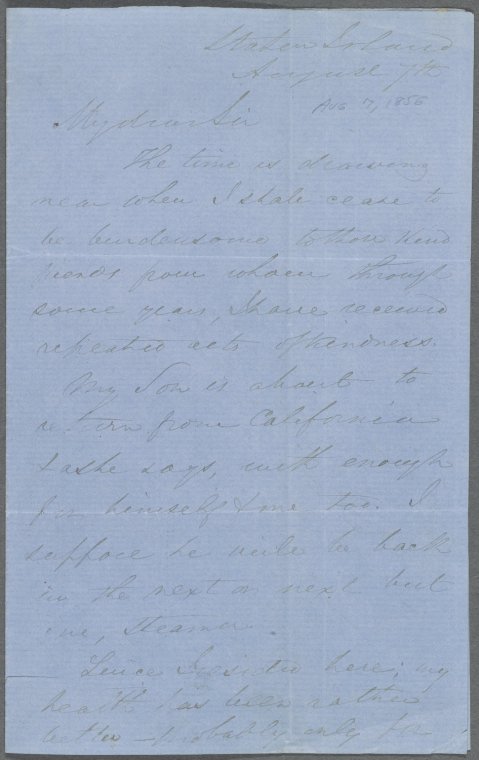 Staten Island
August 7th
Aug 7, 1856
My dear Sir
The time is drawing
near when I shall cease to
be burdensome to those kind
friends from whom through
some years, I have received
repeated acts of kindness.
My Son is about to
return from California
& as he says, with enough
for himself & me too. I
suppose he will be back
in the next or next but
one, steamer.
Since I resided here, my
health has been rather
better – probably only for